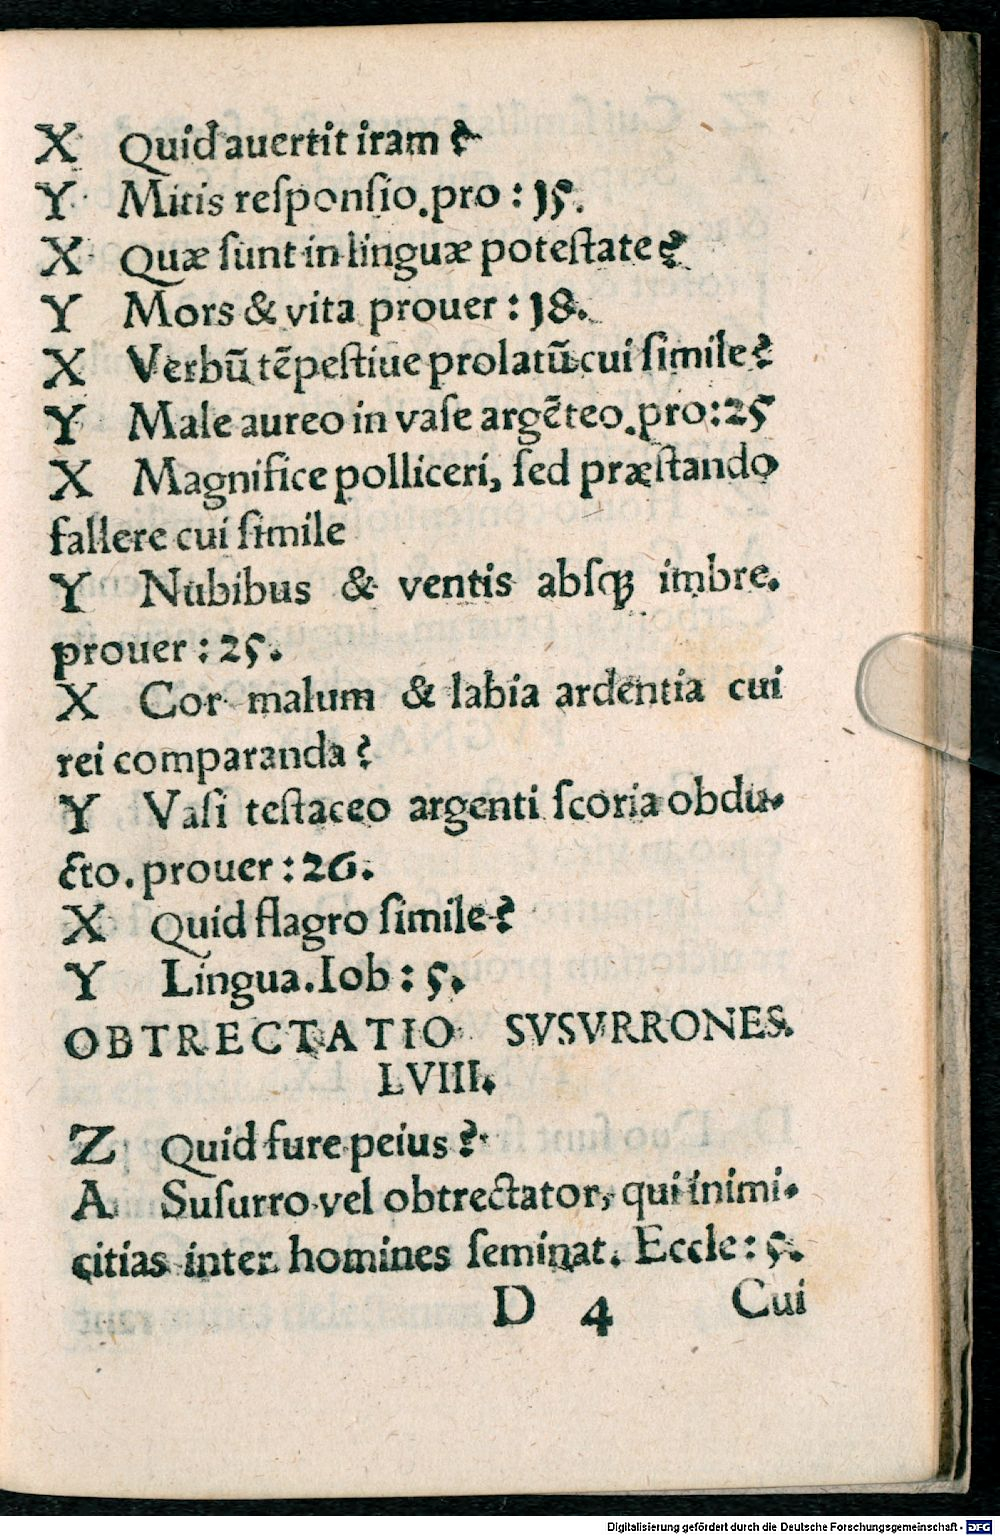 X Quid auertit iram?
Y Mitis reſponſio.pro: 15.
X Quæ ſunt in linguæ poteſtate?
Y Mors & vita prouer: 18.
X Verbū tēpeſtiue prolatū cui ſimile?
Y Male aureo in vaſe argēteo.pro:25
X Magnifice polliceri, ſed præſtando
fallere cui ſimile
Y Nubibus & ventis abſqꝫ imbre.
prouer: 25.
X Cor malum & labia ardentia cui
rei comparanda?
Y Vaſi teſtaceo argenti ſcoria obdu-
cto. prouer: 26.
X Quid flagro ſimile?
Y Lingua. Iob: 5.
OBTRECTATIO SVSVRRONES.
LVIII.
Z Quid fure peius?
A Suſurro vel obtrectator, qui inimi-
citias inter homines ſeminat. Eccle: 5.
D 4 Cui
Digitalisierung gefördert durch die Deutsche Forschungsgemeinschaft - DFG